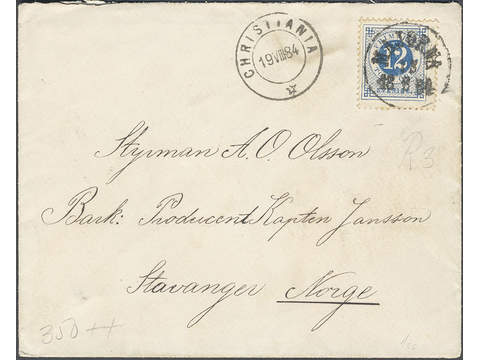 CHRISTIANIA
19 VIII 84
12
Styrman A. O. Olsson
R3
Bark: Producent Kapten Jansson
Stavanger Norge
350 ++